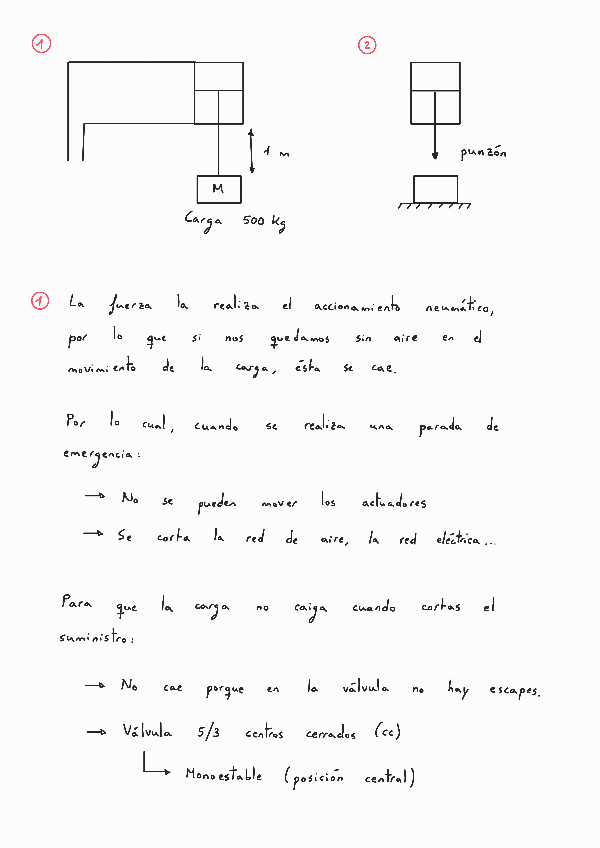 1
2
1 m
punzón
M
Carga 500 Kg
1 La fuerza la realiza el accionamiento neumático,
por lo que si nos quedamos sin aire en el
movimiento de la carga, ésta se cae.
Por lo cual, cuando se realiza una parada de
emergencia:
→ No se pueden mover los actuadores
→ Se corta la red de aire, la red eléctrica...
Para que la carga no caiga cuando cortas el
suministro:
→ No cae porque en la válvula no hay escapes.
→ Válvula 5/3 centros cerrados (cc)
Monoestable (posición central)